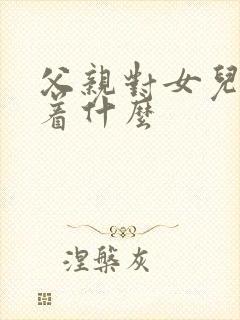 父親對女兒
着什麼
涅槃灰